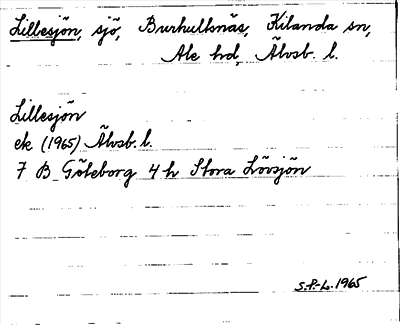 Lillesjön, sjö, Burhultsnäs, Kilanda sn,
Ale hd, Älvsb. l.
Lillesjön
ek (1965) Älvsb. l.
7 B Göteborg 4 h Stora Lövsjön
S.P-L. 1965